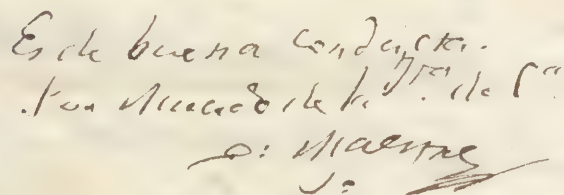 Es de buena conducta.
Por Mandado de la Jta. de Ca.
D: Maestre